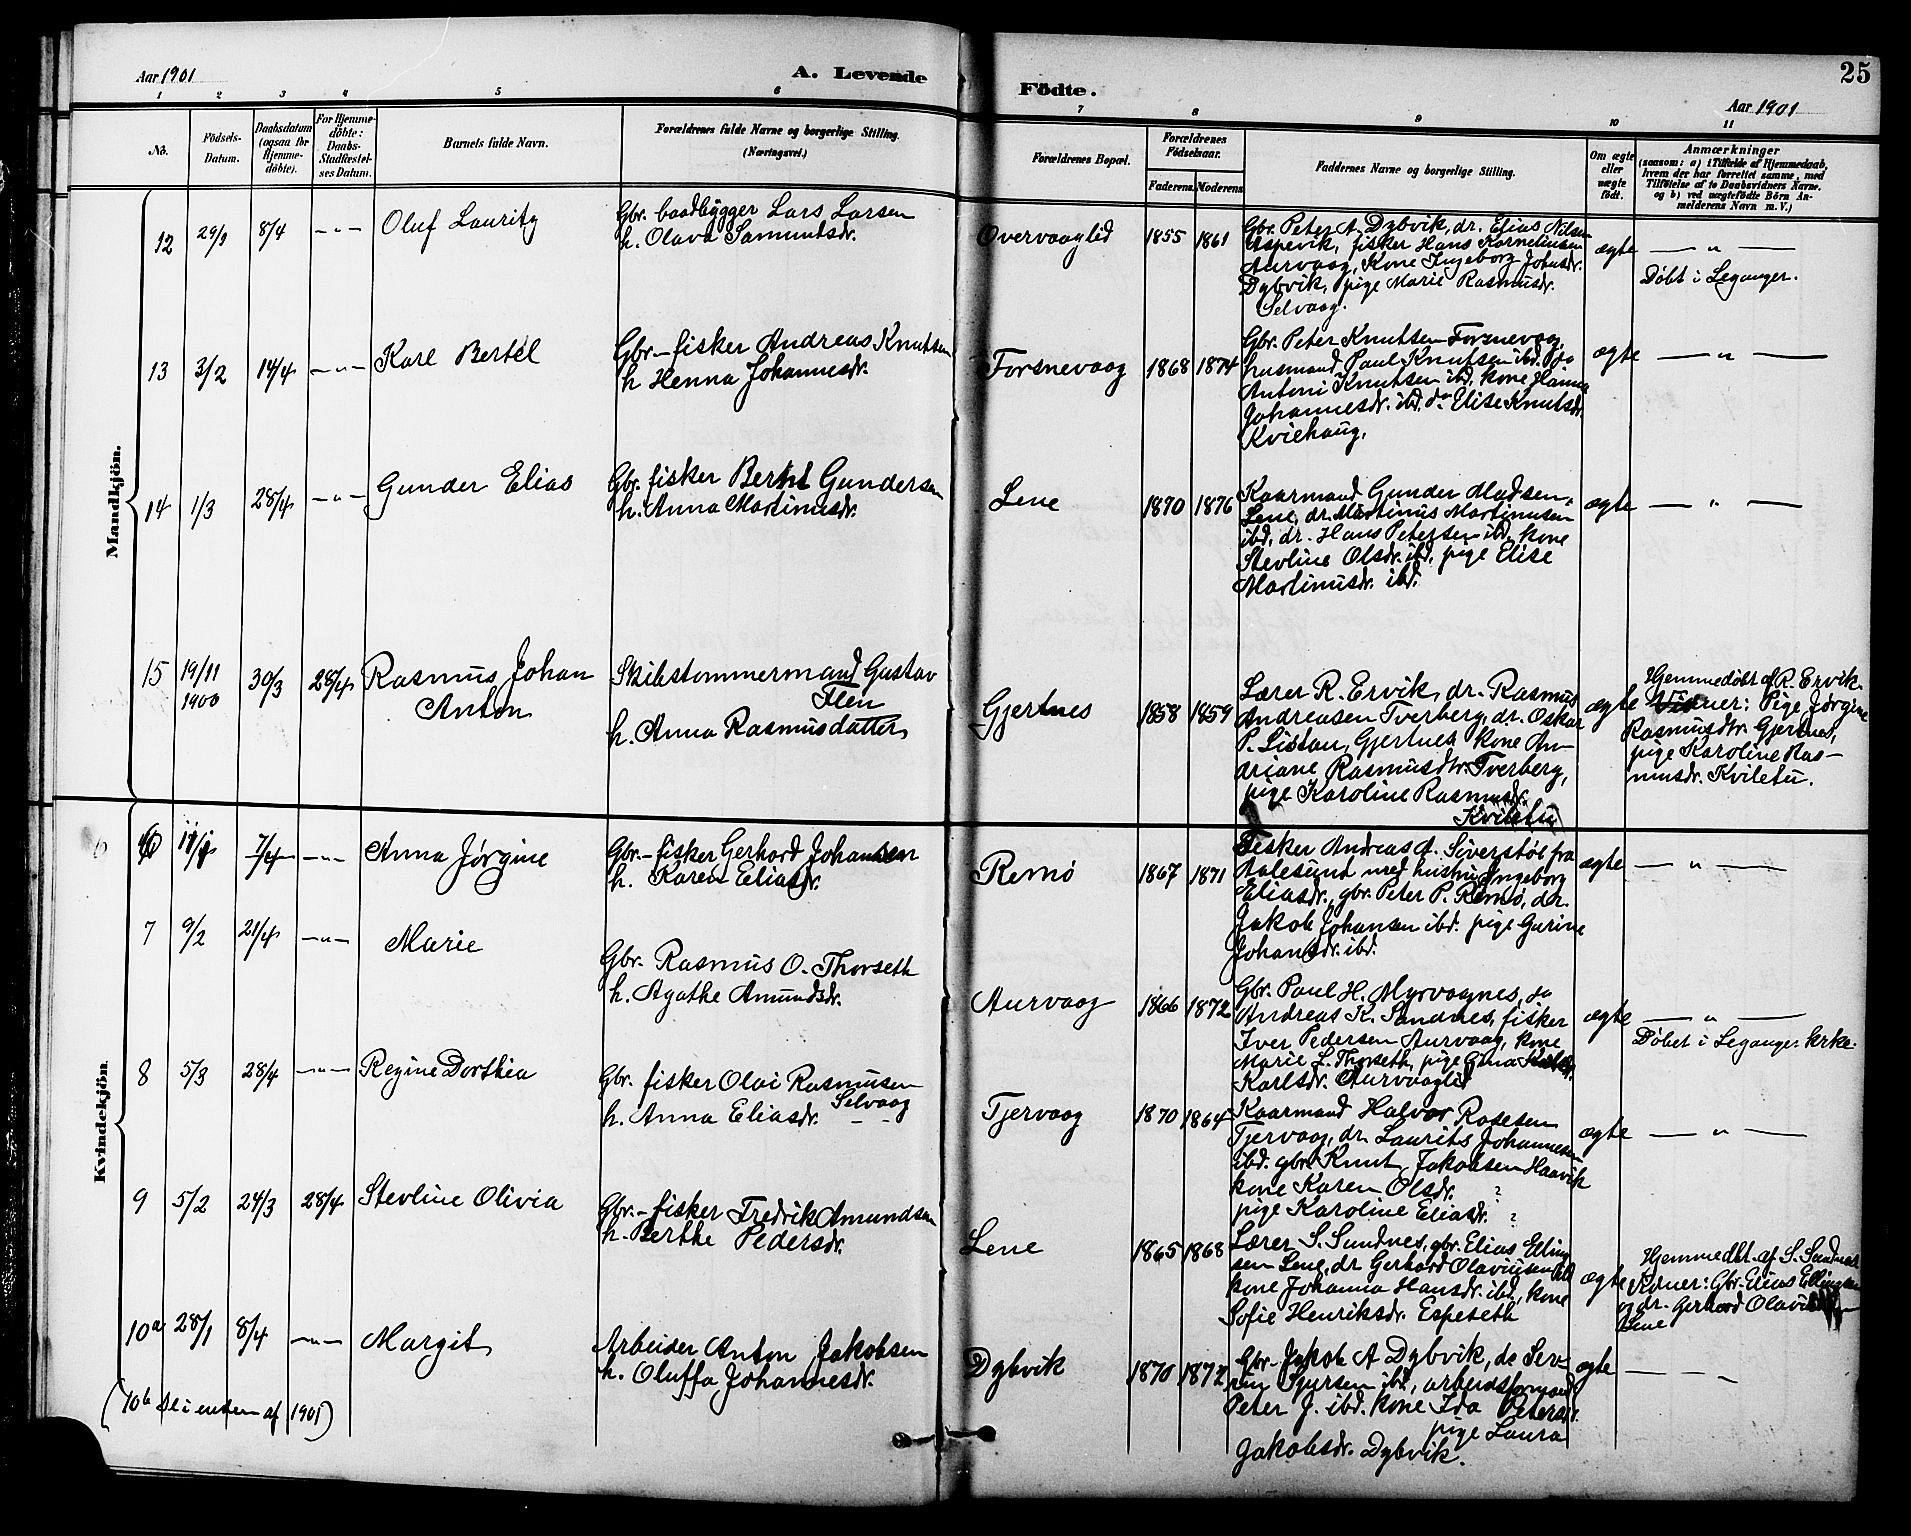 Aar 1901
A. Levende
Födte.
25
Aar 1901
1 2 3 4 5 6 7 8 9 10 11
No.
Födsels-Datum.
Daabsdatum (ogsaa for Hjemme-döbte).
For Hjemme-döbte: Daabs-Stadfæstel-ses Datum.
Barnets fulde Navn.
Forældrenes fulde Navne og borgerlige Stilling.
(Næringsvei.)
Forældrenes Bopæl.
Forældrenes Födselsaar.
Faderens Moderens
Faddernes Navne og borgerlige Stilling.
Om ægte eller uægte født.
Anmærkninger
(saasom: a) i Tilfælde af Hjemmedaab, hvem der har forrettet samme, med Tilföielse af to Daabsvidners Navne, og b) ved uægtefödte Börn Anmelderens Navn m. V.)
Mandkjön.
12 29/1 8/4 -"- Oluf Lauritz
Gbr. baadbygger Lars Larsen
h. Olava Samuntsdr.
Overvaaglid 1855 1861
Gbr. Peter A Dybvik, dr. Elias Nilsen
Espevik, fisker Hans Korneliusen
Aurvaag, Kone Ingeborg Johnsdr.
Dybvik, pige Marie Rasmusdr.
Selvaag.
ægte — " —
Døbt i Leganger.
13 3/2 14/4 -"- Karl Bertel
Gbr.-fisker Andreas Knutsen
h Henna Johannesdr.
Forsnevaag 1868 1874
Gbr. Peter Knutsen Forsnevaag,
husmand Paul Knutsen ibd. do
Antoni Knutsen ibd, kone Hanna
Johannesdr. ibd, do Elise Knutsdr.
Kviehaug.
ægte — " —
14 1/3 28/4 -"- Gunder Elias
Gbr. fisker Bernt Gundersen
h. Anna Martinusdr.
Lene 1870 1876
Kaarmand Gunder Madsen,
Lene, dr. Martinus Martinusen
ibd, dr. Hans Petersen ibd, kone
Stevline Olsdr. ibd, pige Elise
Martinusdr. ibd.
ægte — " —
15 19/11 1900 30/3 28/4 Rasmus Johan
Anton
Skibstømmermand Gustav
Flen
h. Anna Rasmusdatter
Gjertnes 1858 1859
Lærer R. Ervik, dr. Rasmus
Andreasen Tverberg, dr. Oskar
P. Listau, Gjertnes kone An-
driane Rasmusdtr. Tverberg,
pige Karoline Rasmusdr.
Kviletu
ægte
Hjemmedøbt af R. Ervik.
Vidner: Pige Jørgine
Rasmusdtr. Gjertnes,
pige Karoline Ras-
musdr. Kviletu.
Kvindekjön.
6 7/4 -"- Anna Jørgine
Gbr.-fisker Gerhard Johansen
h. Karen Eliasdr.
Remø 1867 1871
Fisker Andreas A. Siverstøl fra
Aalesund med hustru Ingeborg
Eliasdr., gbr. Peter P. Remø, dr.
Jakob Johansen ibd. pige Gurine
Johansdr. ibd.
ægte — " —
7 9/2 21/4 -"- Marie
Gbr. Rasmus O. Thorseth
h. Agathe Amundsdr.
Aurvaag 1866 1872
Gbr. Paul H. Myrvaagnes, do
Andreas K. Sandnes, fisker
Iver Pedersen Aurvaag, kone
Marie L. Thorseth, pige Gina
Karlsdr. Aurvaaglid
ægte — " —
Døbet i Leganger kirke.
8 5/3 28/4 -"- Regine Dorthea
Gbr. fisker Olai Rasmusen
Selvaag
h. Anna Eliasdr. - -
Tjervaag 1870 1864
Kaarmand Halvor Rasesen
Tjervaag, dr. Laurits Johannesen
ibd. gbr. Knut Jakobsen Haavik
kone Karen Olsdr. ?
pige Karoline Eliasdr. ?
ægte — " —
9 5/2 24/3 28/4 Stevline Olivia
Gbr.-fisker Fredrik Amundsen
h. Berthe Pedersdr.
Lene 1865 1868
Lærer S. Sundnes, gbr. Elias Elling
sen Lene, dr Gerhard Olaviusen ibd
kone Johanna Hansdr. ibd, kone
Sofie Henriksdr. Espeseth
ægte
Hjemmedbt. af S. Sundnes
Vidner: Gbr. Elias Ellingsen
og dr. Gerhard
Lene
10a 28/1 8/4 -"- Margit
Arbeider Anton Jakobsen
h. Oluffa Johannesdr.
Dybvik 1870 1872
Gbr. Jakob A Dybvik, do Sev-
rin Sjursen ibd, arbeidsformand
Peter J. ibd. kone Ida Petersdr.
pige Laura
Jakobsdr. Dybvik.
ægte — - -
(10b se i enden af 1901)